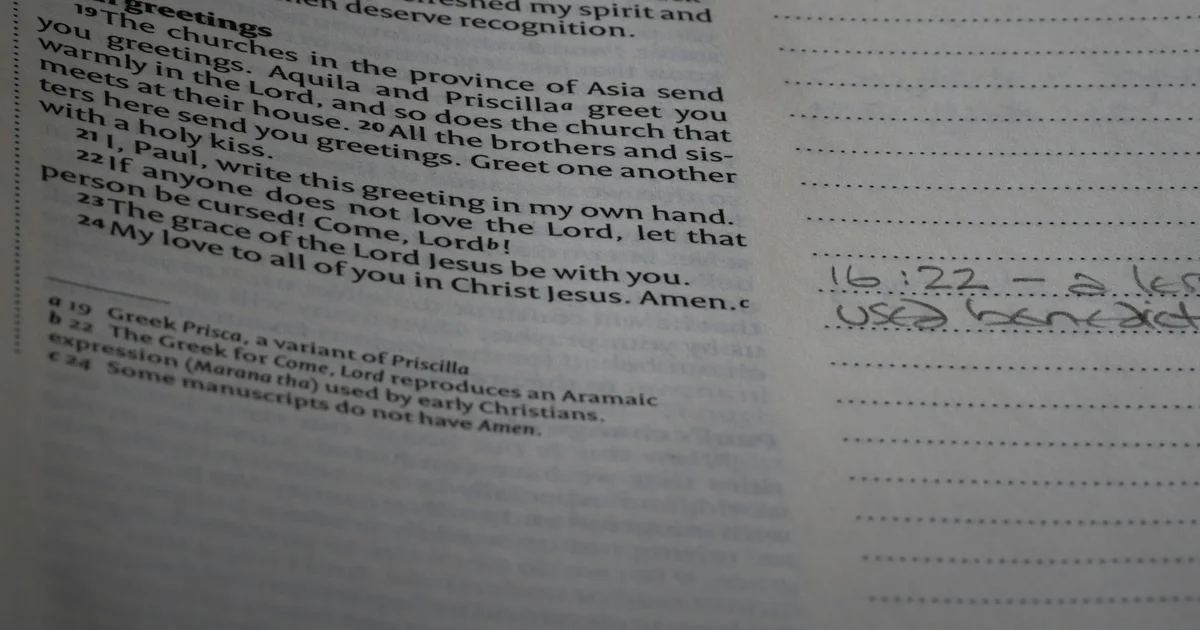 my spirit and
deserve recognition.
greetings
19 The churches in the province of Asia send
you greetings. Aquila and Priscillaa greet you
warmly in the Lord, and so does the church that
meets at their house. 20 All the brothers and sis-
ters here send you greetings. Greet one another
with a holy kiss.
21 I, Paul, write this greeting in my own hand.
22 If anyone does not love the Lord, let that
person be cursed! Come, Lordb!
23 The grace of the Lord Jesus be with you.
24 My love to all of you in Christ Jesus. Amen.c
a 19 Greek Prisca, a variant of Priscilla
b 22 The Greek for Come, Lord reproduces an Aramaic
expression (Marana tha) used by early Christians.
c 24 Some manuscripts do not have Amen.
16:22 - a
used